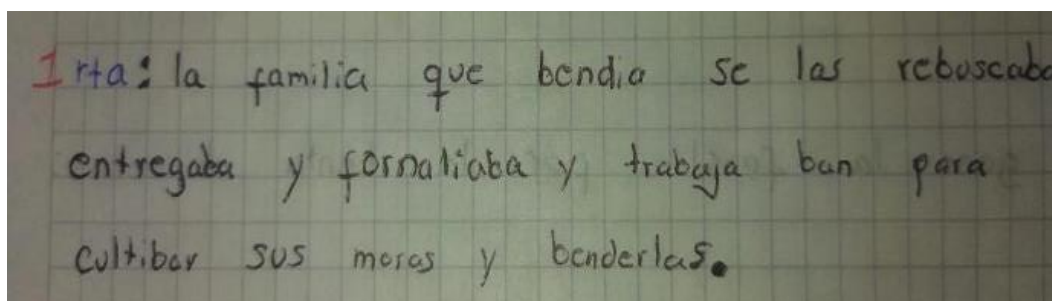 1 rta: la familia que bendia se las rebuscaba
entregaba y fornaliaba y trabaja ban para
cultibar sus moras y benderlas.